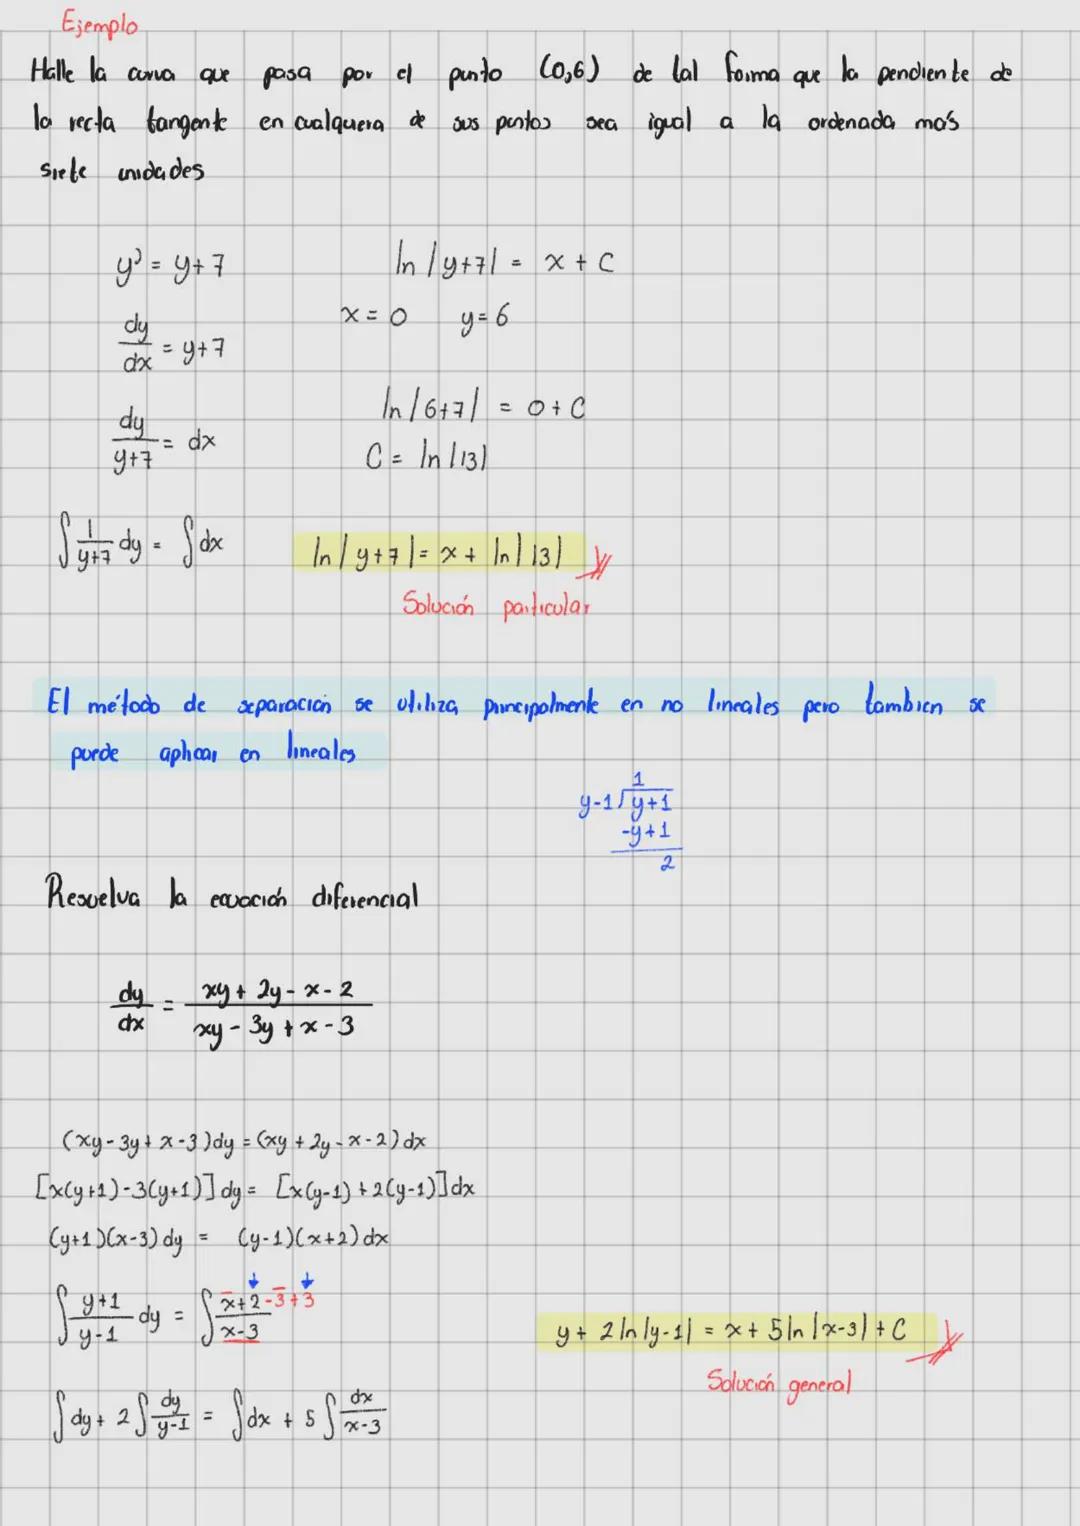 Ejemplo
Halle la curva que pasa por el punto (0,6) de tal forma que la pendiente de
la recta tangente en cualquera de sus puntos sea igual a la ordenada más
siete unidades
y' = y+7
dy/dx = y+7
dy/(y+7) = dx
∫ 1/(y+7) dy = ∫ dx
ln |y+7| = x + C
x = 0 y = 6
ln |6+7| = 0 + C
C = ln |13|
ln |y+7| = x + ln |13|
Solución particular
El método de separación se utiliza principalmente en no lineales pero tambien se
puede aplicar en lineales
1
y-1 √ y+1
-y+1
2
Resuelva la ecuación diferencial
dy/dx = (xy + 2y - x - 2)/(xy - 3y + x - 3)
(xy - 3y + x - 3) dy = (xy + 2y - x - 2) dx
[x(y+1) - 3(y+1)] dy = [x(y-1) + 2(y-1)] dx
(y+1)(x-3) dy = (y-1)(x+2) dx
∫ (y+1)/(y-1) dy = ∫ (x+2-3+3)/(x-3)
∫ dy + 2 ∫ dy/(y-1) = ∫ dx + 5 ∫ dx/(x-3)
y + 2 ln |y-1| = x + 5 ln |x-3| + C
Solución general